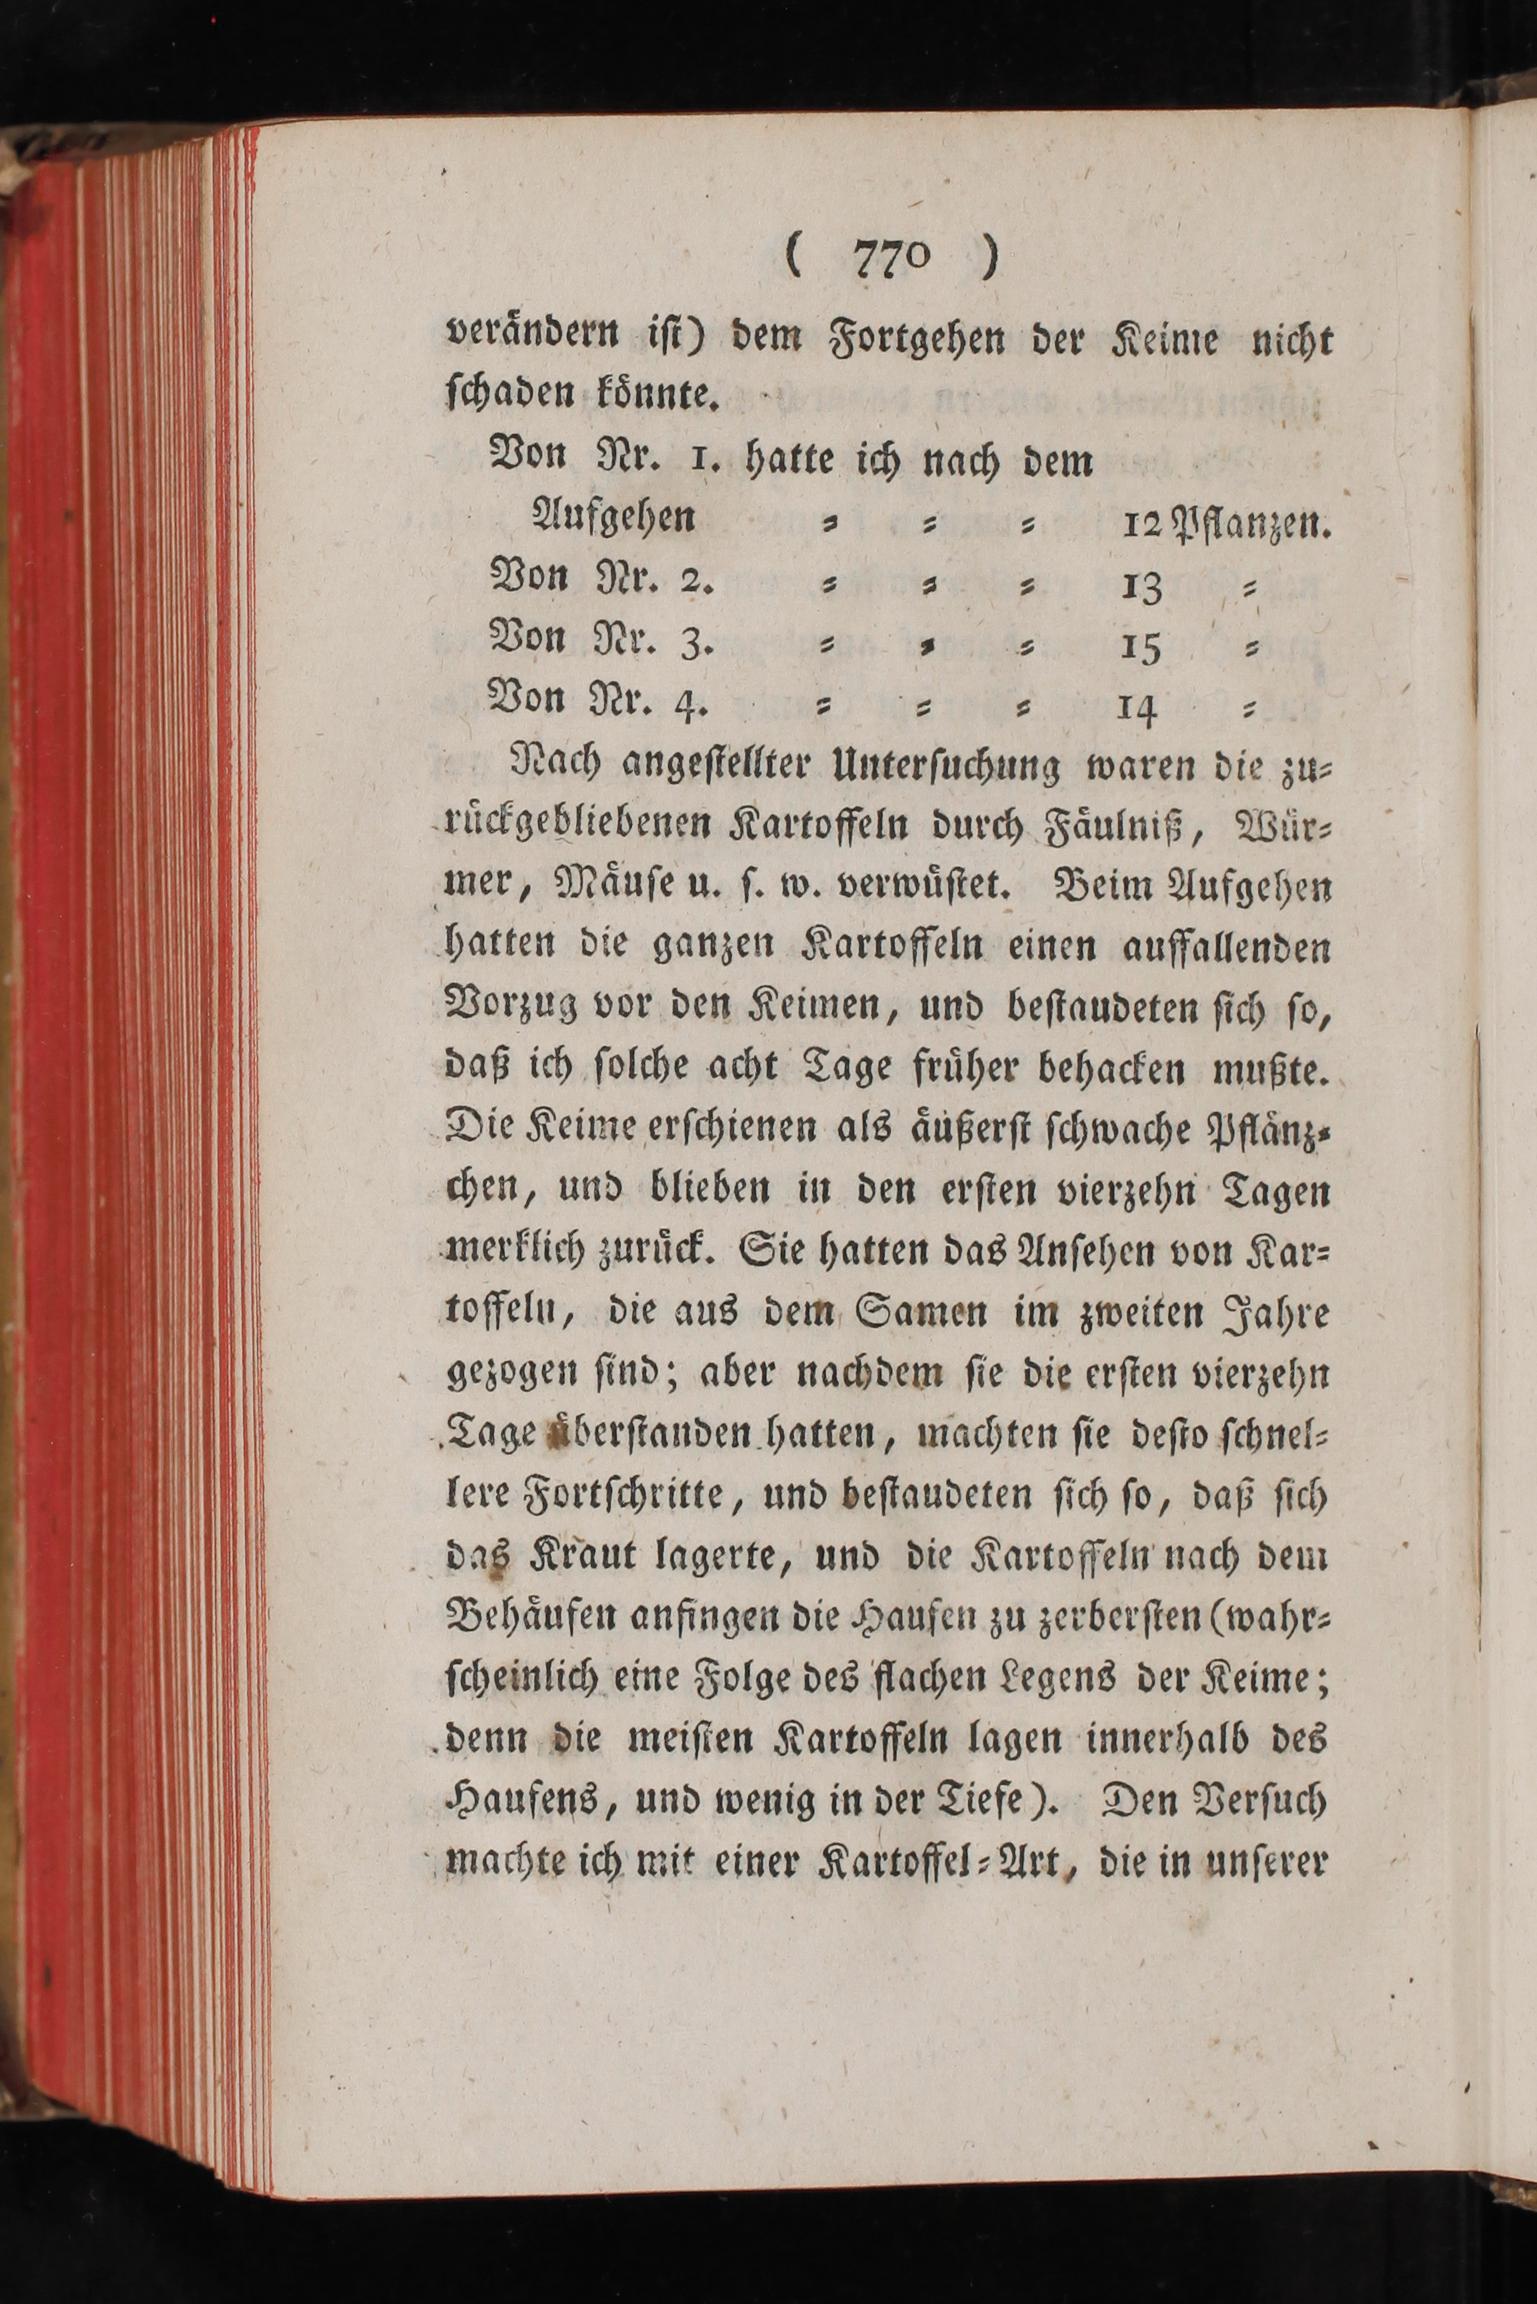 ( 770 )
verändern iſt) dem Fortgehen der Keime nicht
ſchaden könnte.
Von Nr. 1. hatte ich nach dem
Aufgehen = = = 12 Pflanzen.
Von Nr. 2. = = = 13 =
Von Nr. 3. = = = 15 =
Von Nr. 4. = = = 14 =
Nach angeſtellter Unterſuchung waren die zu=
rückgebliebenen Kartoffeln durch Fäulniß, Wür=
mer, Mäuſe u. ſ. w. verwüſtet. Beim Aufgehen
hatten die ganzen Kartoffeln einen auffallenden
Vorzug vor den Keimen, und beſtaudeten ſich ſo,
daß ich ſolche acht Tage früher behacken mußte.
Die Keime erſchienen als äußerſt ſchwache Pflänz=
chen, und blieben in den erſten vierzehn Tagen
merklich zurück. Sie hatten das Anſehen von Kar=
toffeln, die aus dem Samen im zweiten Jahre
gezogen ſind; aber nachdem ſie die erſten vierzehn
Tage überſtanden hatten, machten ſie deſto ſchnel=
lere Fortſchritte, und beſtaudeten ſich ſo, daß ſich
das Kraut lagerte, und die Kartoffeln nach dem
Behäufen anfingen die Haufen zu zerberſten (wahr=
ſcheinlich eine Folge des flachen Legens der Keime;
denn die meiſten Kartoffeln lagen innerhalb des
Haufens, und wenig in der Tiefe). Den Verſuch
machte ich mit einer Kartoffel=Art, die in unſerer